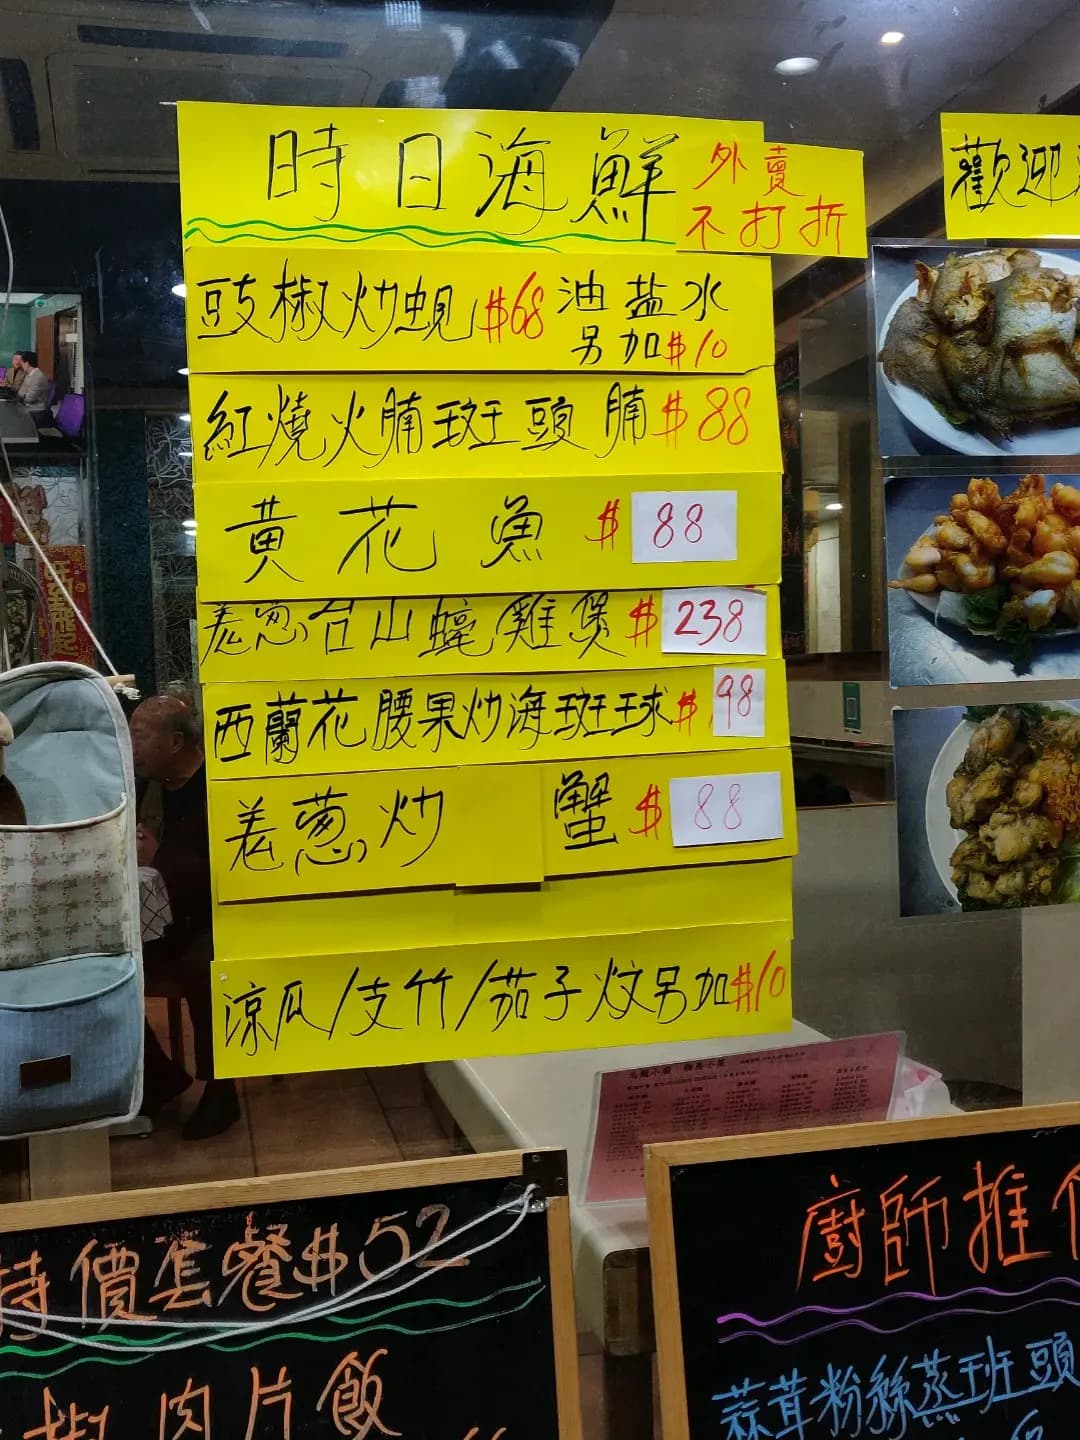 時日海鮮
外賣
不打折
歡迎
豉椒炒蜆$68 油盐水
另加$10
紅燒火腩斑頭腩$88
黄花魚 $88
羗葱台山蠔雞煲$238
西蘭花腰果炒海斑球$98
羗葱炒 蟹$88
涼瓜/支竹/茄子炆另加$10
特價套餐$52
椒肉片飯
廚師推
蒜茸粉絲蒸班頭